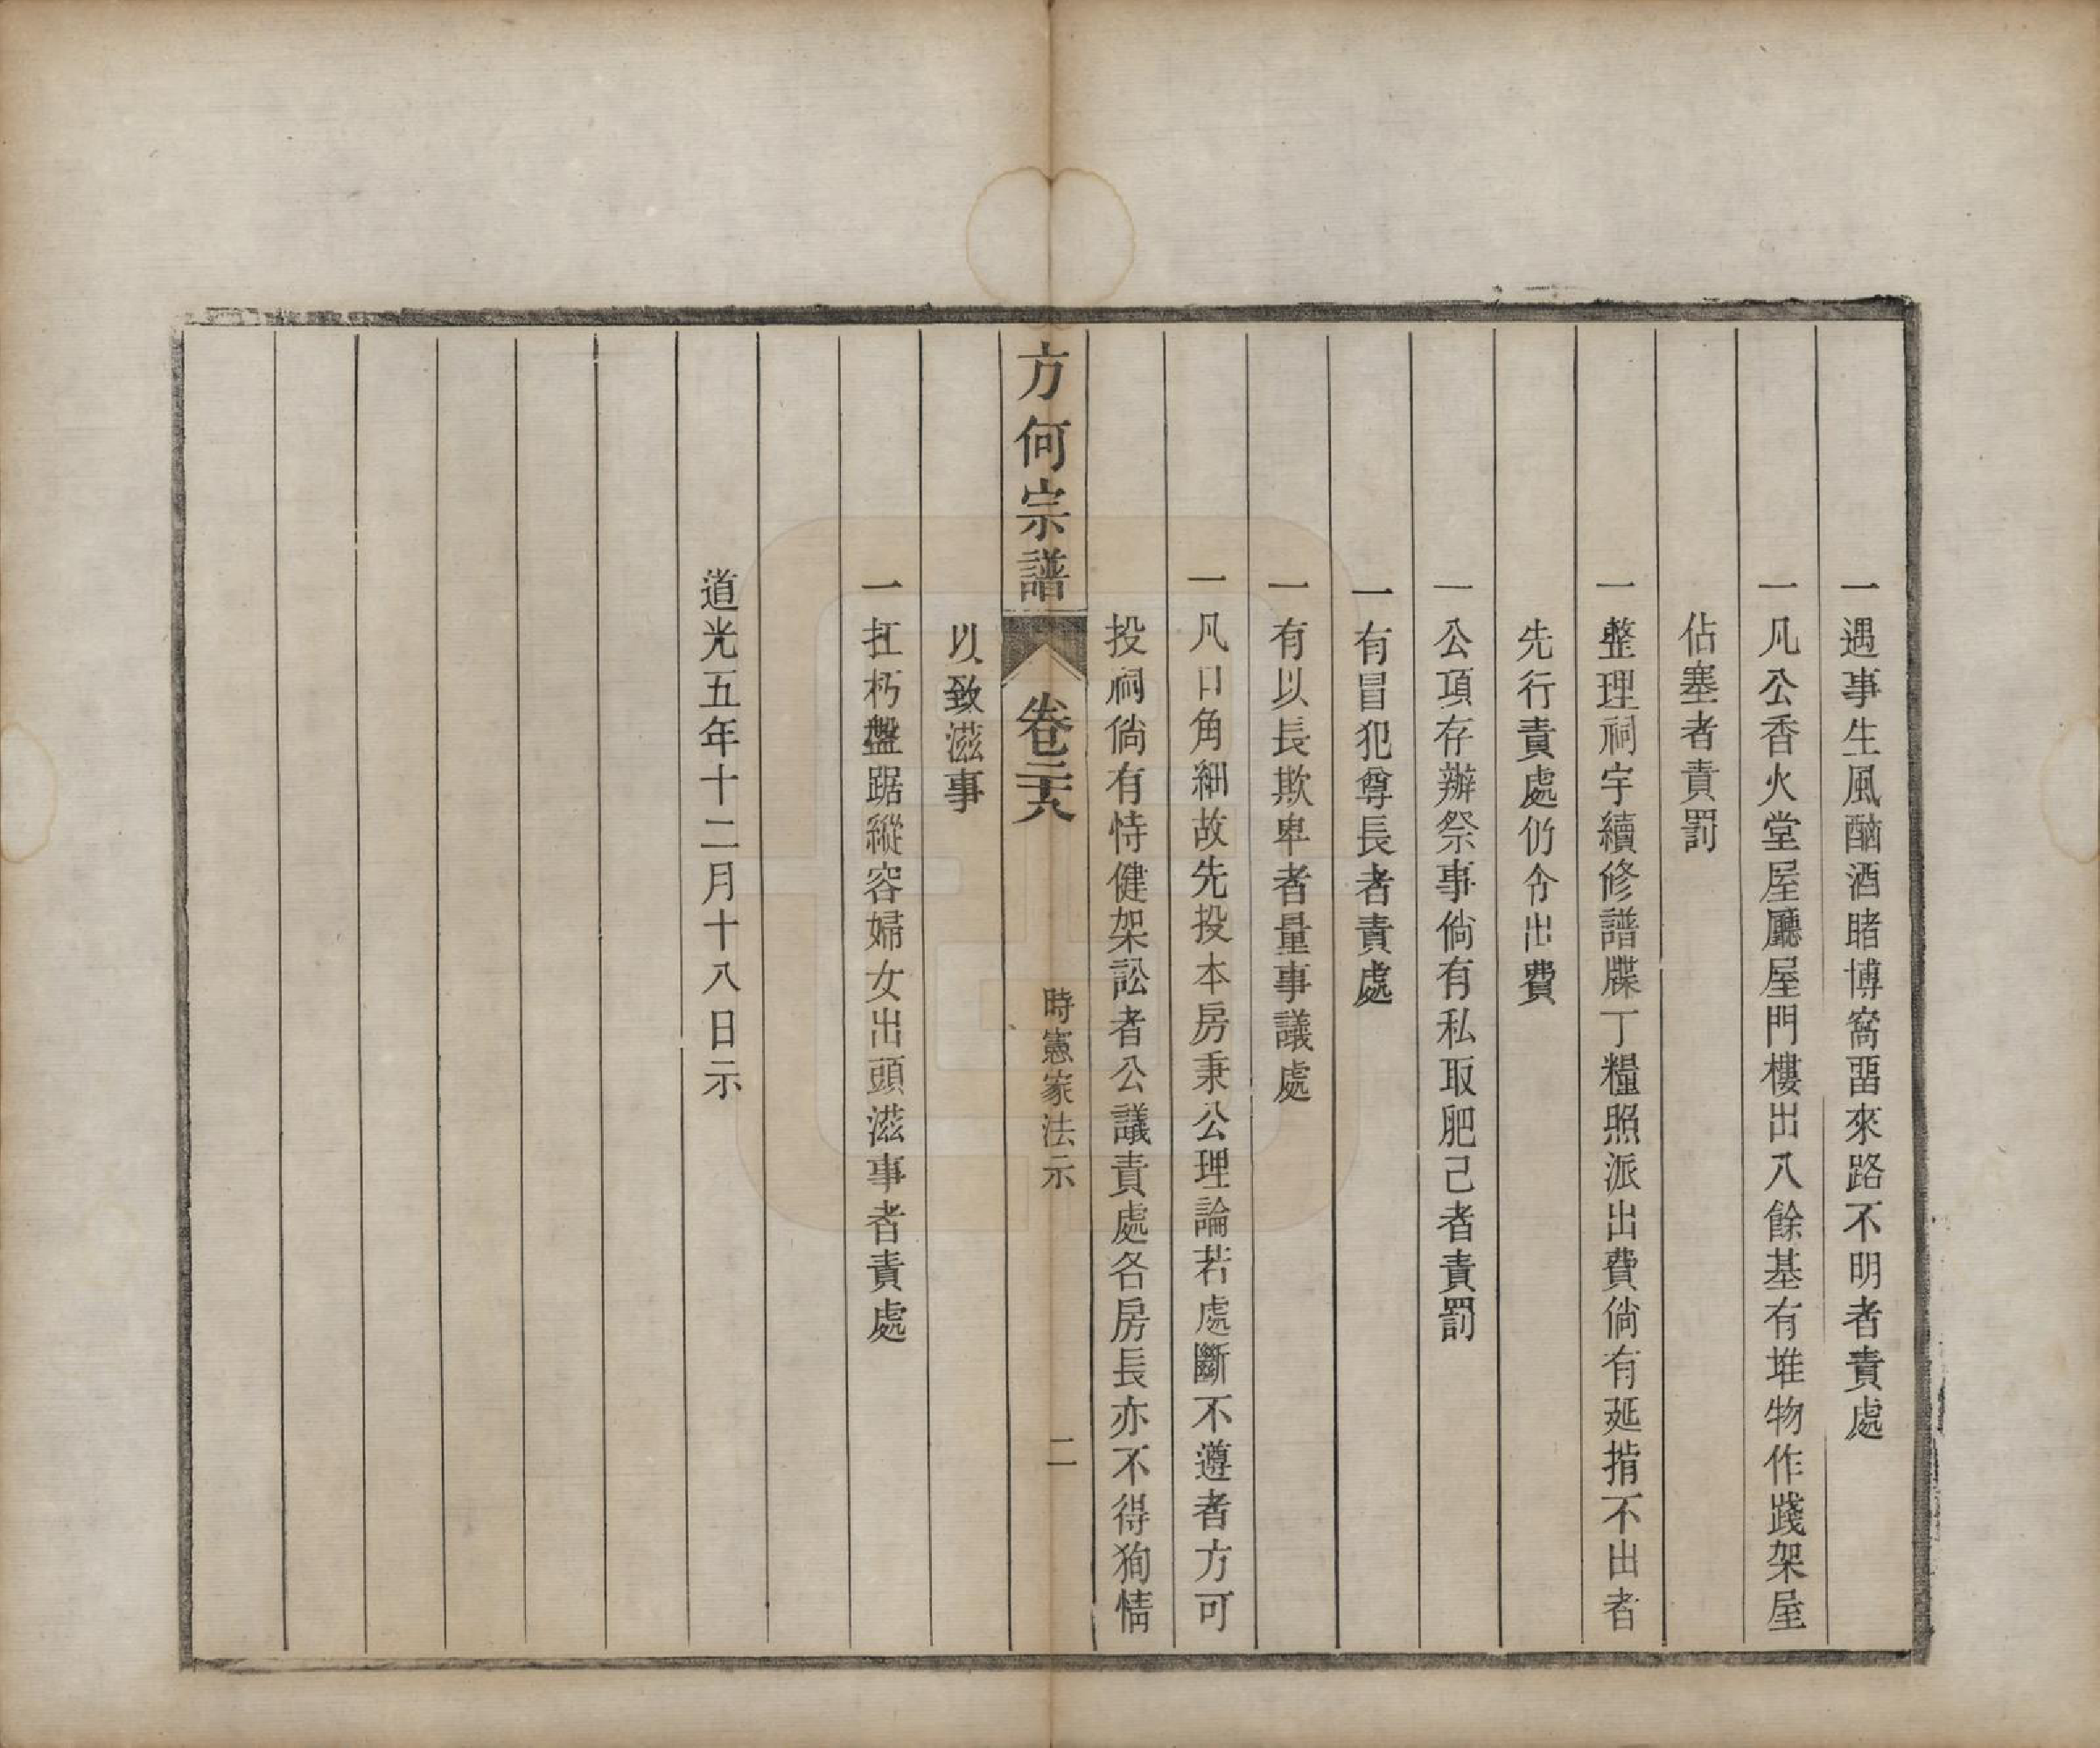 一遇事生風酗酒賭博窩畱來路不明者責處
一凡公香火堂屋廳屋門樓出入餘基有堆物作踐架屋
佔塞者責罰
一整理祠宇續修譜牒丁糧照派出費倘有延揹不出者
先行責處仍令出費
一公項存辦祭事倘有私取肥己者責罰
一有冒犯尊長者責處
一有以長欺卑者量事議處
一凡口角細故先投本房秉公理論若處斷不遵者方可
投祠倘有恃健架訟者公議責處各房長亦不得狥情
方何宗譜 卷二十六 時憲家法示 二
以致滋事
一扛朽盤踞縱容婦女出頭滋事者責處
道光五年十二月十八日示